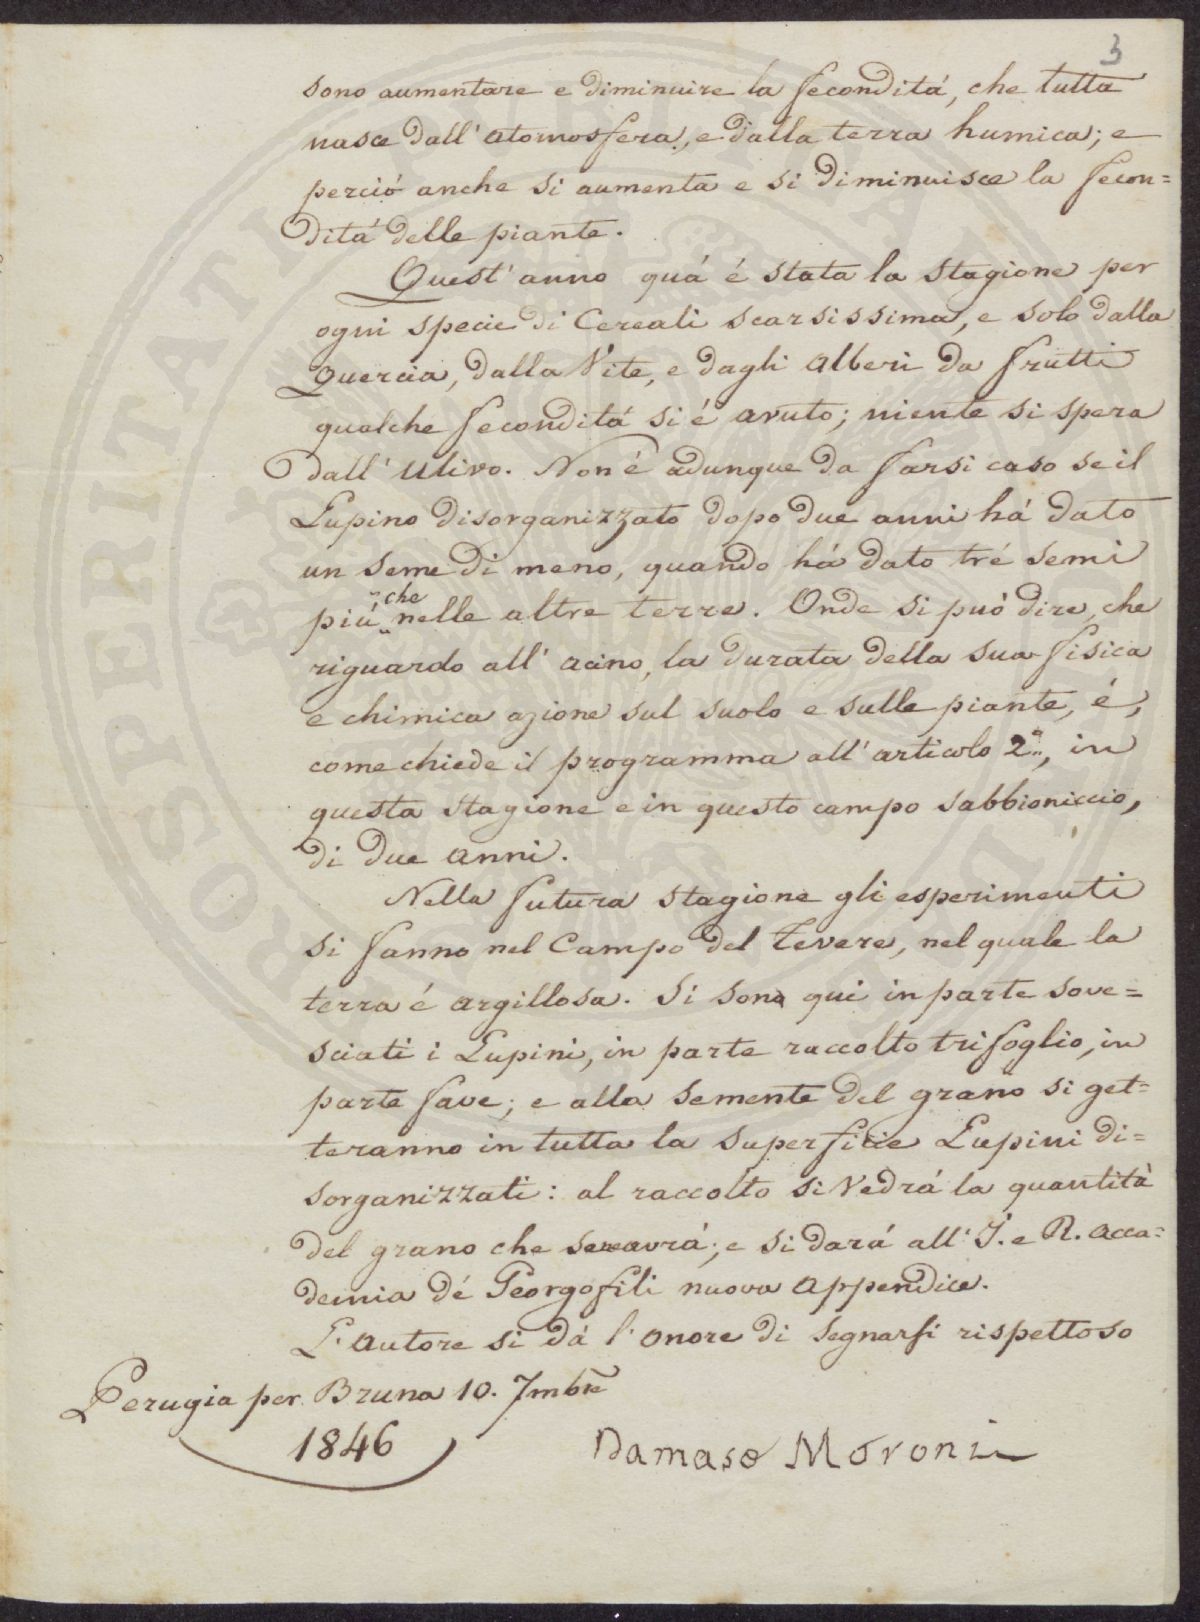 3
sono aumentare e diminuire la fecondità, che tutta
nasce dall' atomosfera, e dalla terra humica; e
perciò anche si aumenta e si diminuisce la fecon=
dità delle piante.
Quest' anno quà é stata la stagione per
ogni specie di Cereali scarsissima, e solo dalla
Quercia, dalla Vite, e dagli Alberi da frutti
qualche fecondità si é avuto; niente si spera
dall' Ulivo. Non é adunque da farsi caso se il
Lupino disorganizzato dopo due anni há dato
un seme di meno, quando há dato tré semi
più che nelle altre terre. Onde si può dire, che
riguardo all' acino, la durata della sua fisica
e chimica azione sul suolo e sulle piante, é,
come chiede il programma all' articolo 2º, in
questa stagione e in questo campo sabbioniccio,
di due anni.
Nella futura stagione gli esperimenti
si fanno nel Campo del Tevere, nel quale la
terra é argillosa. Si sono qui in parte sove=
sciati i Lupini, in parte raccolto trifoglio, in
parte fave; e alla semente del grano si get=
teranno in tutta la superficie Lupini di=
sorganizzati: al raccolto si vedrá la quantità
del grano che avrá; e si dará all' I. e R. Acca=
demia dé Georgofili nuova Appendice.
L' autore si dá l' onore di segnarsi rispettoso
Perugia per Bruna 10. 7mbre
1846
Damaso Moroni
PROSPERITATI